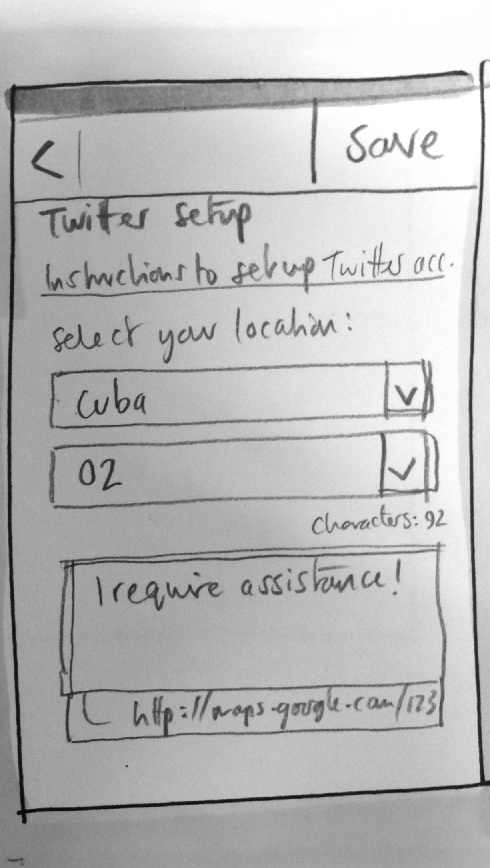 < Save
Twitter setup
Instructions to setup Twitter acc.
select your location:
Cuba
02
Characters: 92
I require assistance!
http://maps.google.com/123